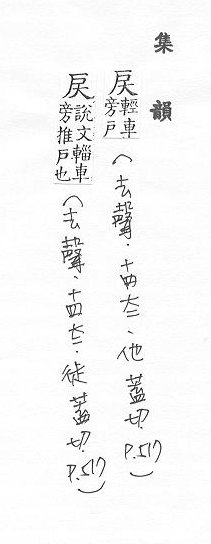 集韻
戾輕車旁戶(去聲．十四太．他蓋切P.517)
戾說文輜車旁推戶也(去聲．十四太．徒蓋切P.517)